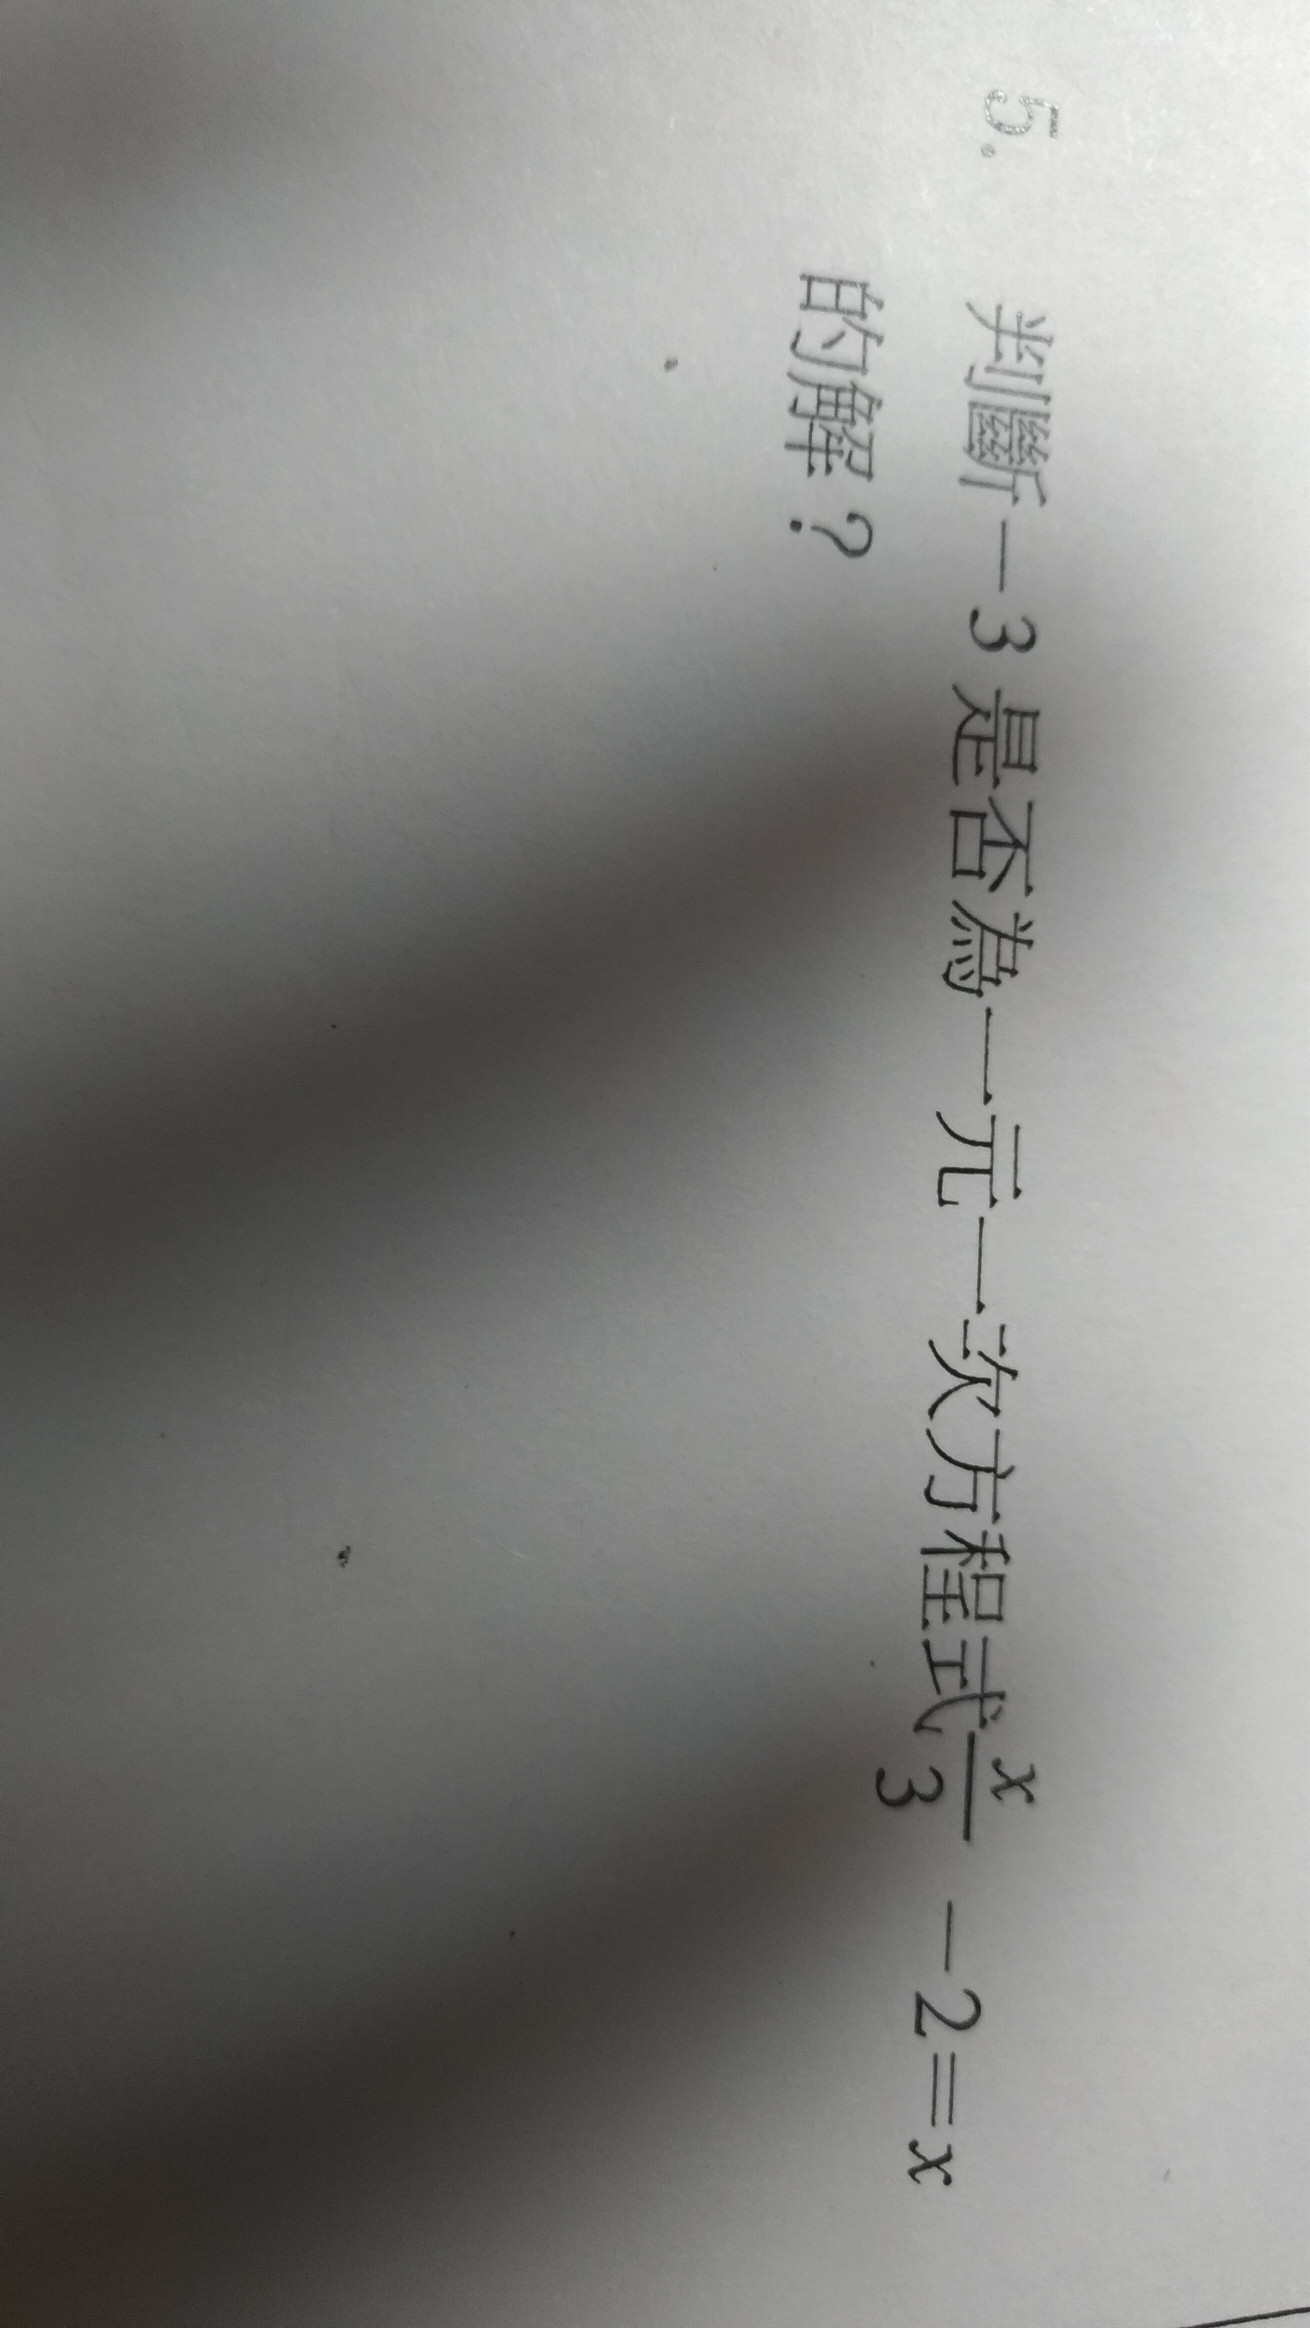 5. 判斷－3是否為一元一次方程式 x/3 －2＝x
的解？